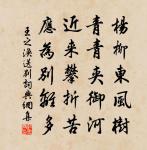 楊柳東風樹
青青夾御河
近來攀折苦
應為別離多
王之渙送別詞典網集